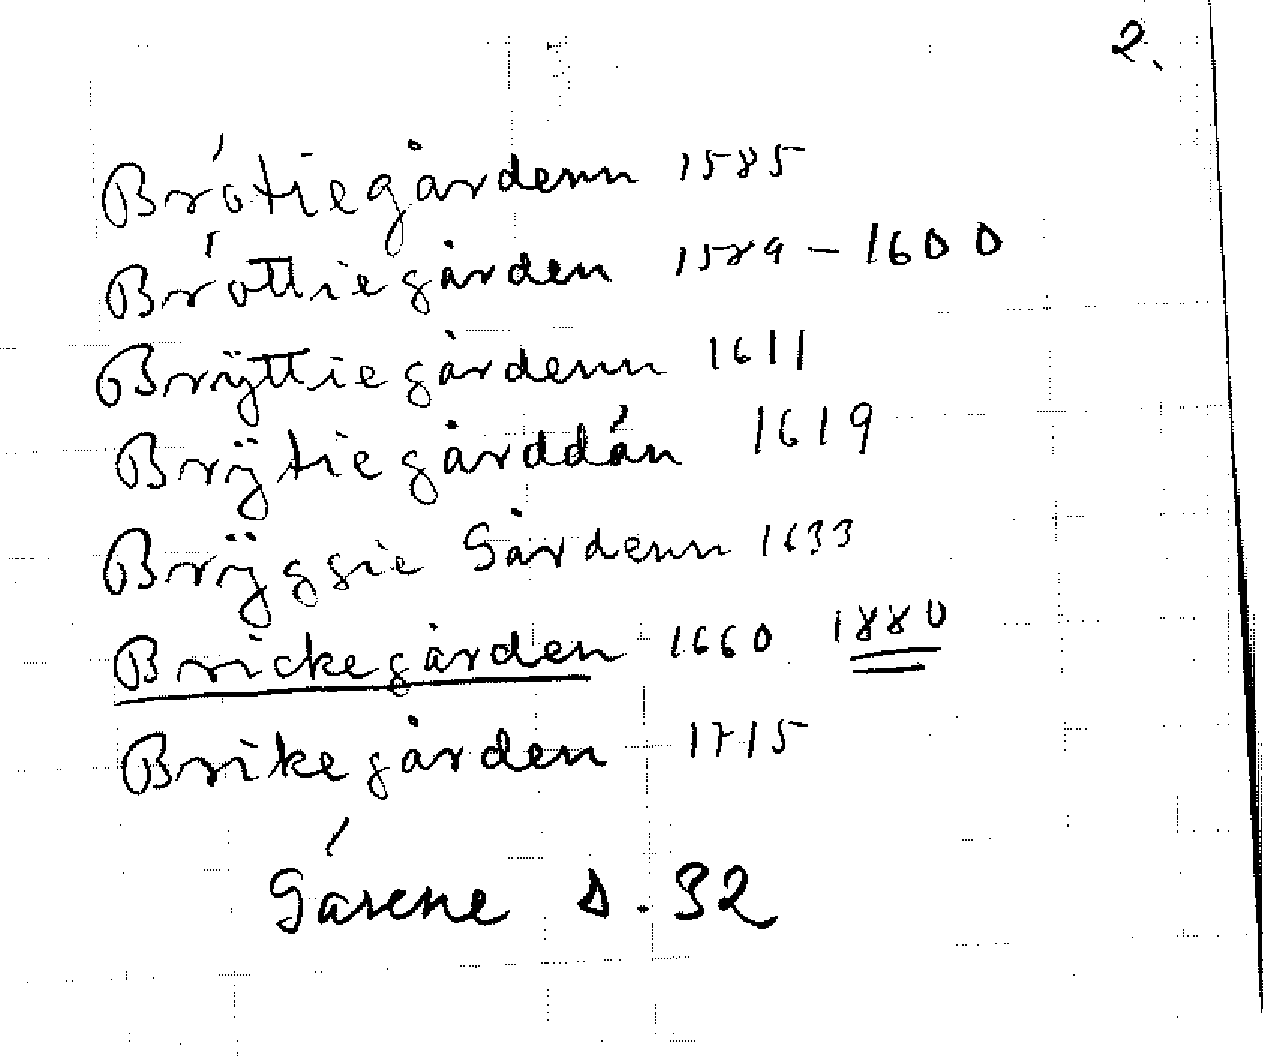 2.
Brótiegårdenn 1585
Bróttiegården 1589 - 1600
Brÿttiegårdenn 1611
Brÿtiegårddán 1619
Brÿggie Gårdenn 1633
Brickegården 1660 1880
Brikegården 1715
Gárene D. 32